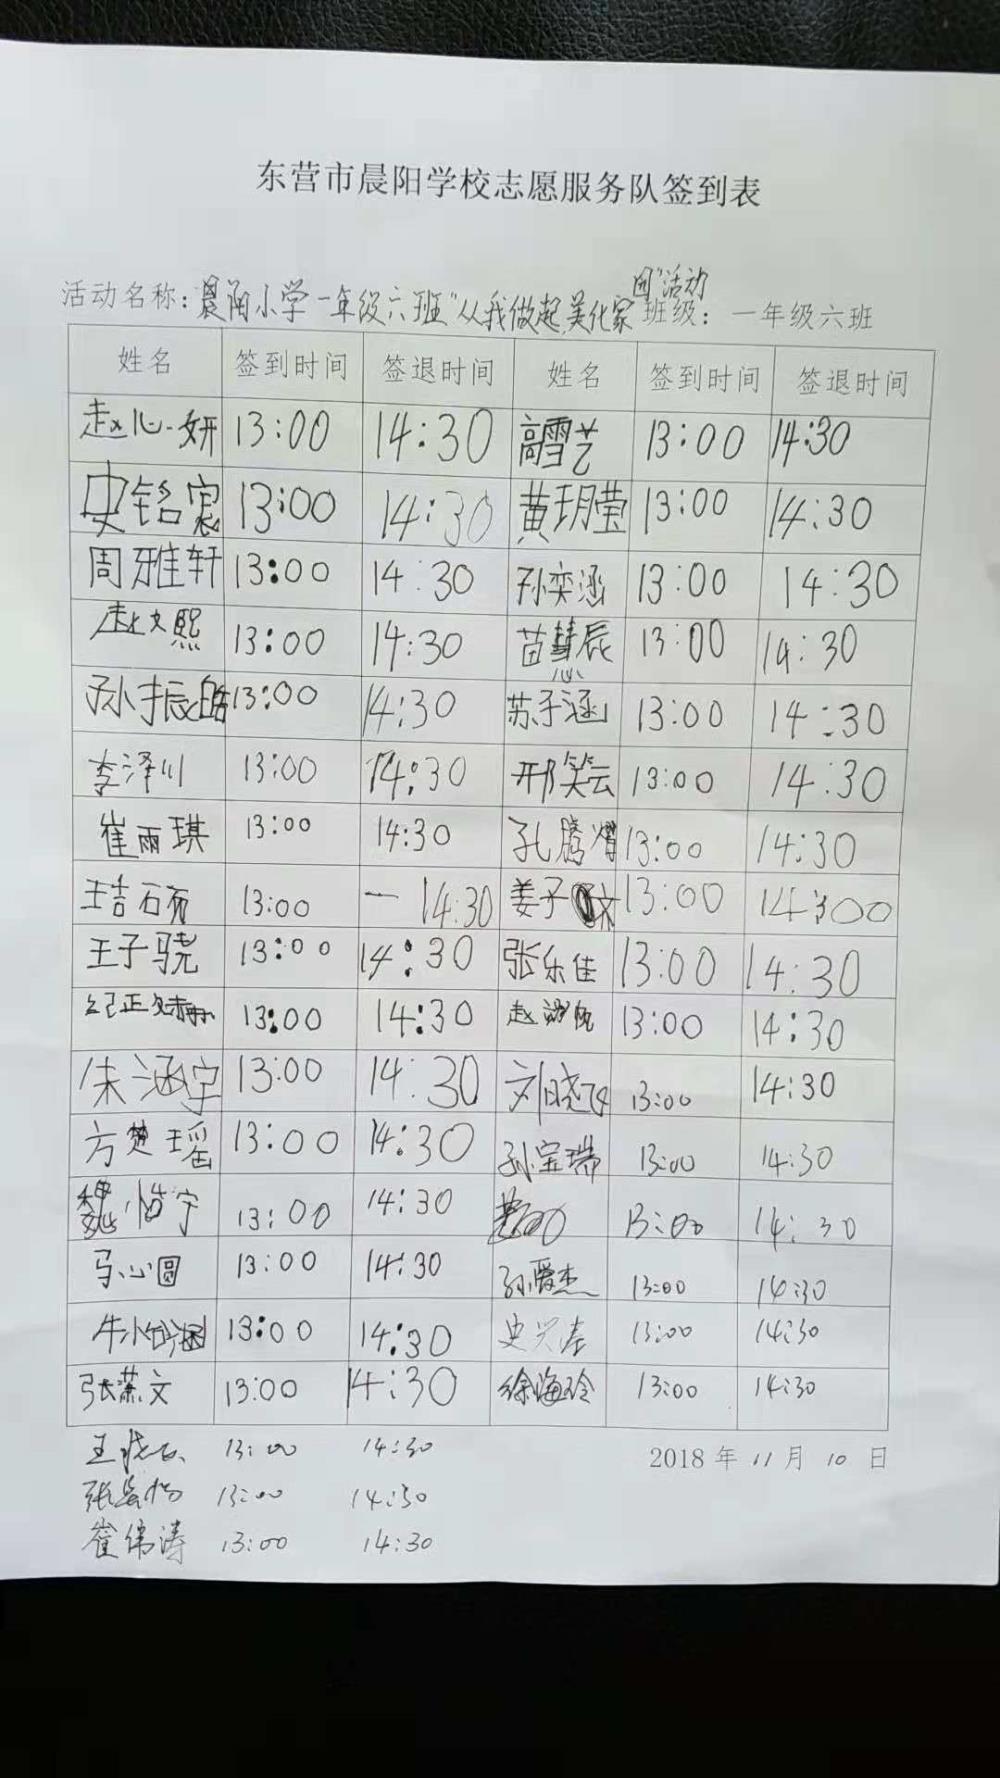 东营市晨阳学校志愿服务队签到表
园"活动
活动名称：晨阳小学一年级六班"从我做起,美化家 班级：一年级六班
姓名 签到时间 签退时间 姓名 签到时间 签退时间
赵心妍 13:00 14:30 高雪艺 13:00 14:30
史铭宸 13:00 14:30 黄玥莹 13:00 14:30
周雅轩 13:00 14:30 孙奕涵 13:00 14:30
赵文熙 13:00 14:30 苗慧辰 13:00 14:30
孙振皓 13:00 14:30 苏子涵 13:00 14:30
李泽川 13:00 14:30 邢笑云 13:00 14:30
崔雨琪 13:00 14:30 孔腾 13:00 14:30
13:00 一 14:30 姜子 文 13:00 14:00
王子骁 13:00 14:30 张乐佳 13:00 14:30
13:00 14:30 赵 13:00 14:30
朱涵宇 13:00 14:30 刘晓 13:00 14:30
方楚瑶 13:00 14:30 孙宝瑞 13:00 14:30
魏怡宁 13:00 14:30 13:00 14:30
马心圆 13:00 14:30 孙爱杰 13:00 14:30
牛 涵 13:00 14:30 史兴 13:00 14:30
张萧文 13:00 14:30 徐海玲 13:00 14:30
王晓 13:00 14:30 2018年11月10日
张 13:00 14:30
崔伟涛 13:00 14:30